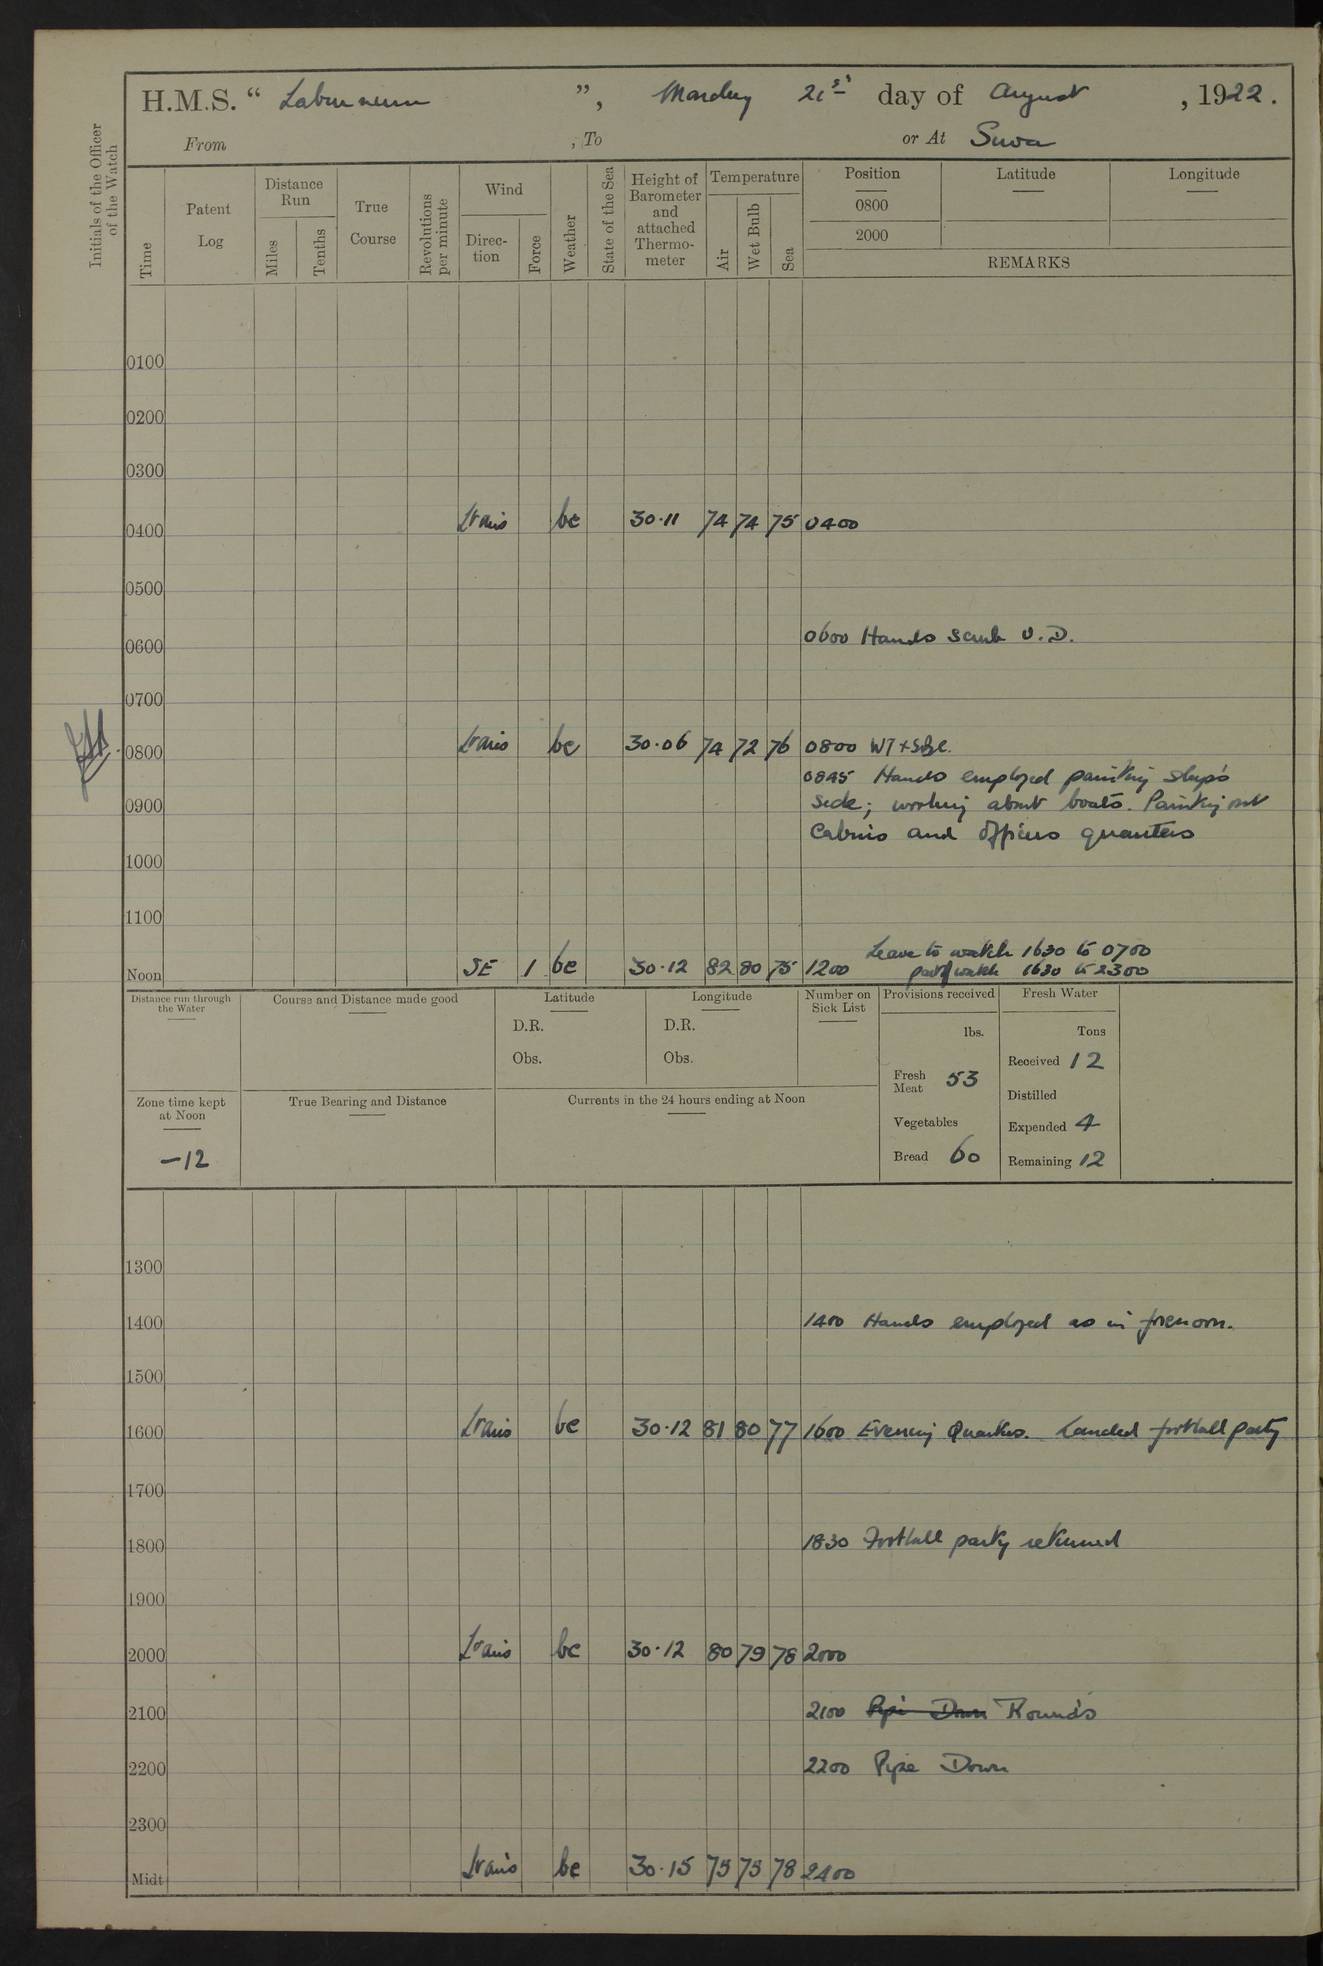 H.M.S. “ Laburnum ”, Monday 21st day of August , 1922.
From , To or At Suva
Initials of the Officer of the Watch
Time
Patent Log
Distance Run
Miles
Tenths
True Course
Revolutions per minute
Wind
Direc-tion
Force
Weather
State of the Sea
Height of Barometer and attached Thermo-meter
Temperature
Air
Wet Bulb
Sea
Position Latitude Longitude
0800
2000
REMARKS
0100
0200
0300
0400 Lt airs bc 30.11 74 74 75 0400
0500
0600 0600 Hands scrub U.D.
0700
0800 Lt airs bc 30.06 74 72 76 0800
0845 Hands employed painting ship's
0900 side; working about boats. Painting out
Cabins and Officers quarters
1000
1100
Leave to watch 1630 to 0700
Noon SE 1 bc 30.12 82 80 75 1200 part of watch 1630 to 2300
Distance run through the Water
Course and Distance made good
Latitude
D.R.
Obs.
Longitude
D.R.
Obs.
Number on Sick List
Provisions received
lbs.
Fresh Meat 53
Vegetables
Bread 60
Fresh Water
Tons
Received 12
Distilled
Expended 4
Remaining 12
Zone time kept at Noon
-12
True Bearing and Distance
Currents in the 24 hours ending at Noon
1300
1400 1400 Hands employed as in forenoon.
1500
1600 Lt airs bc 30.12 81 80 77 1600 Evening Quarters. Landed football party
1700
1800 1830 Football party returned
1900
2000 Lt airs bc 30.12 80 79 78 2000
2100 2100 Pipe Down Rounds
2200 2200 Pipe Down
2300
Midt Lt airs bc 30.15 75 75 78 2400